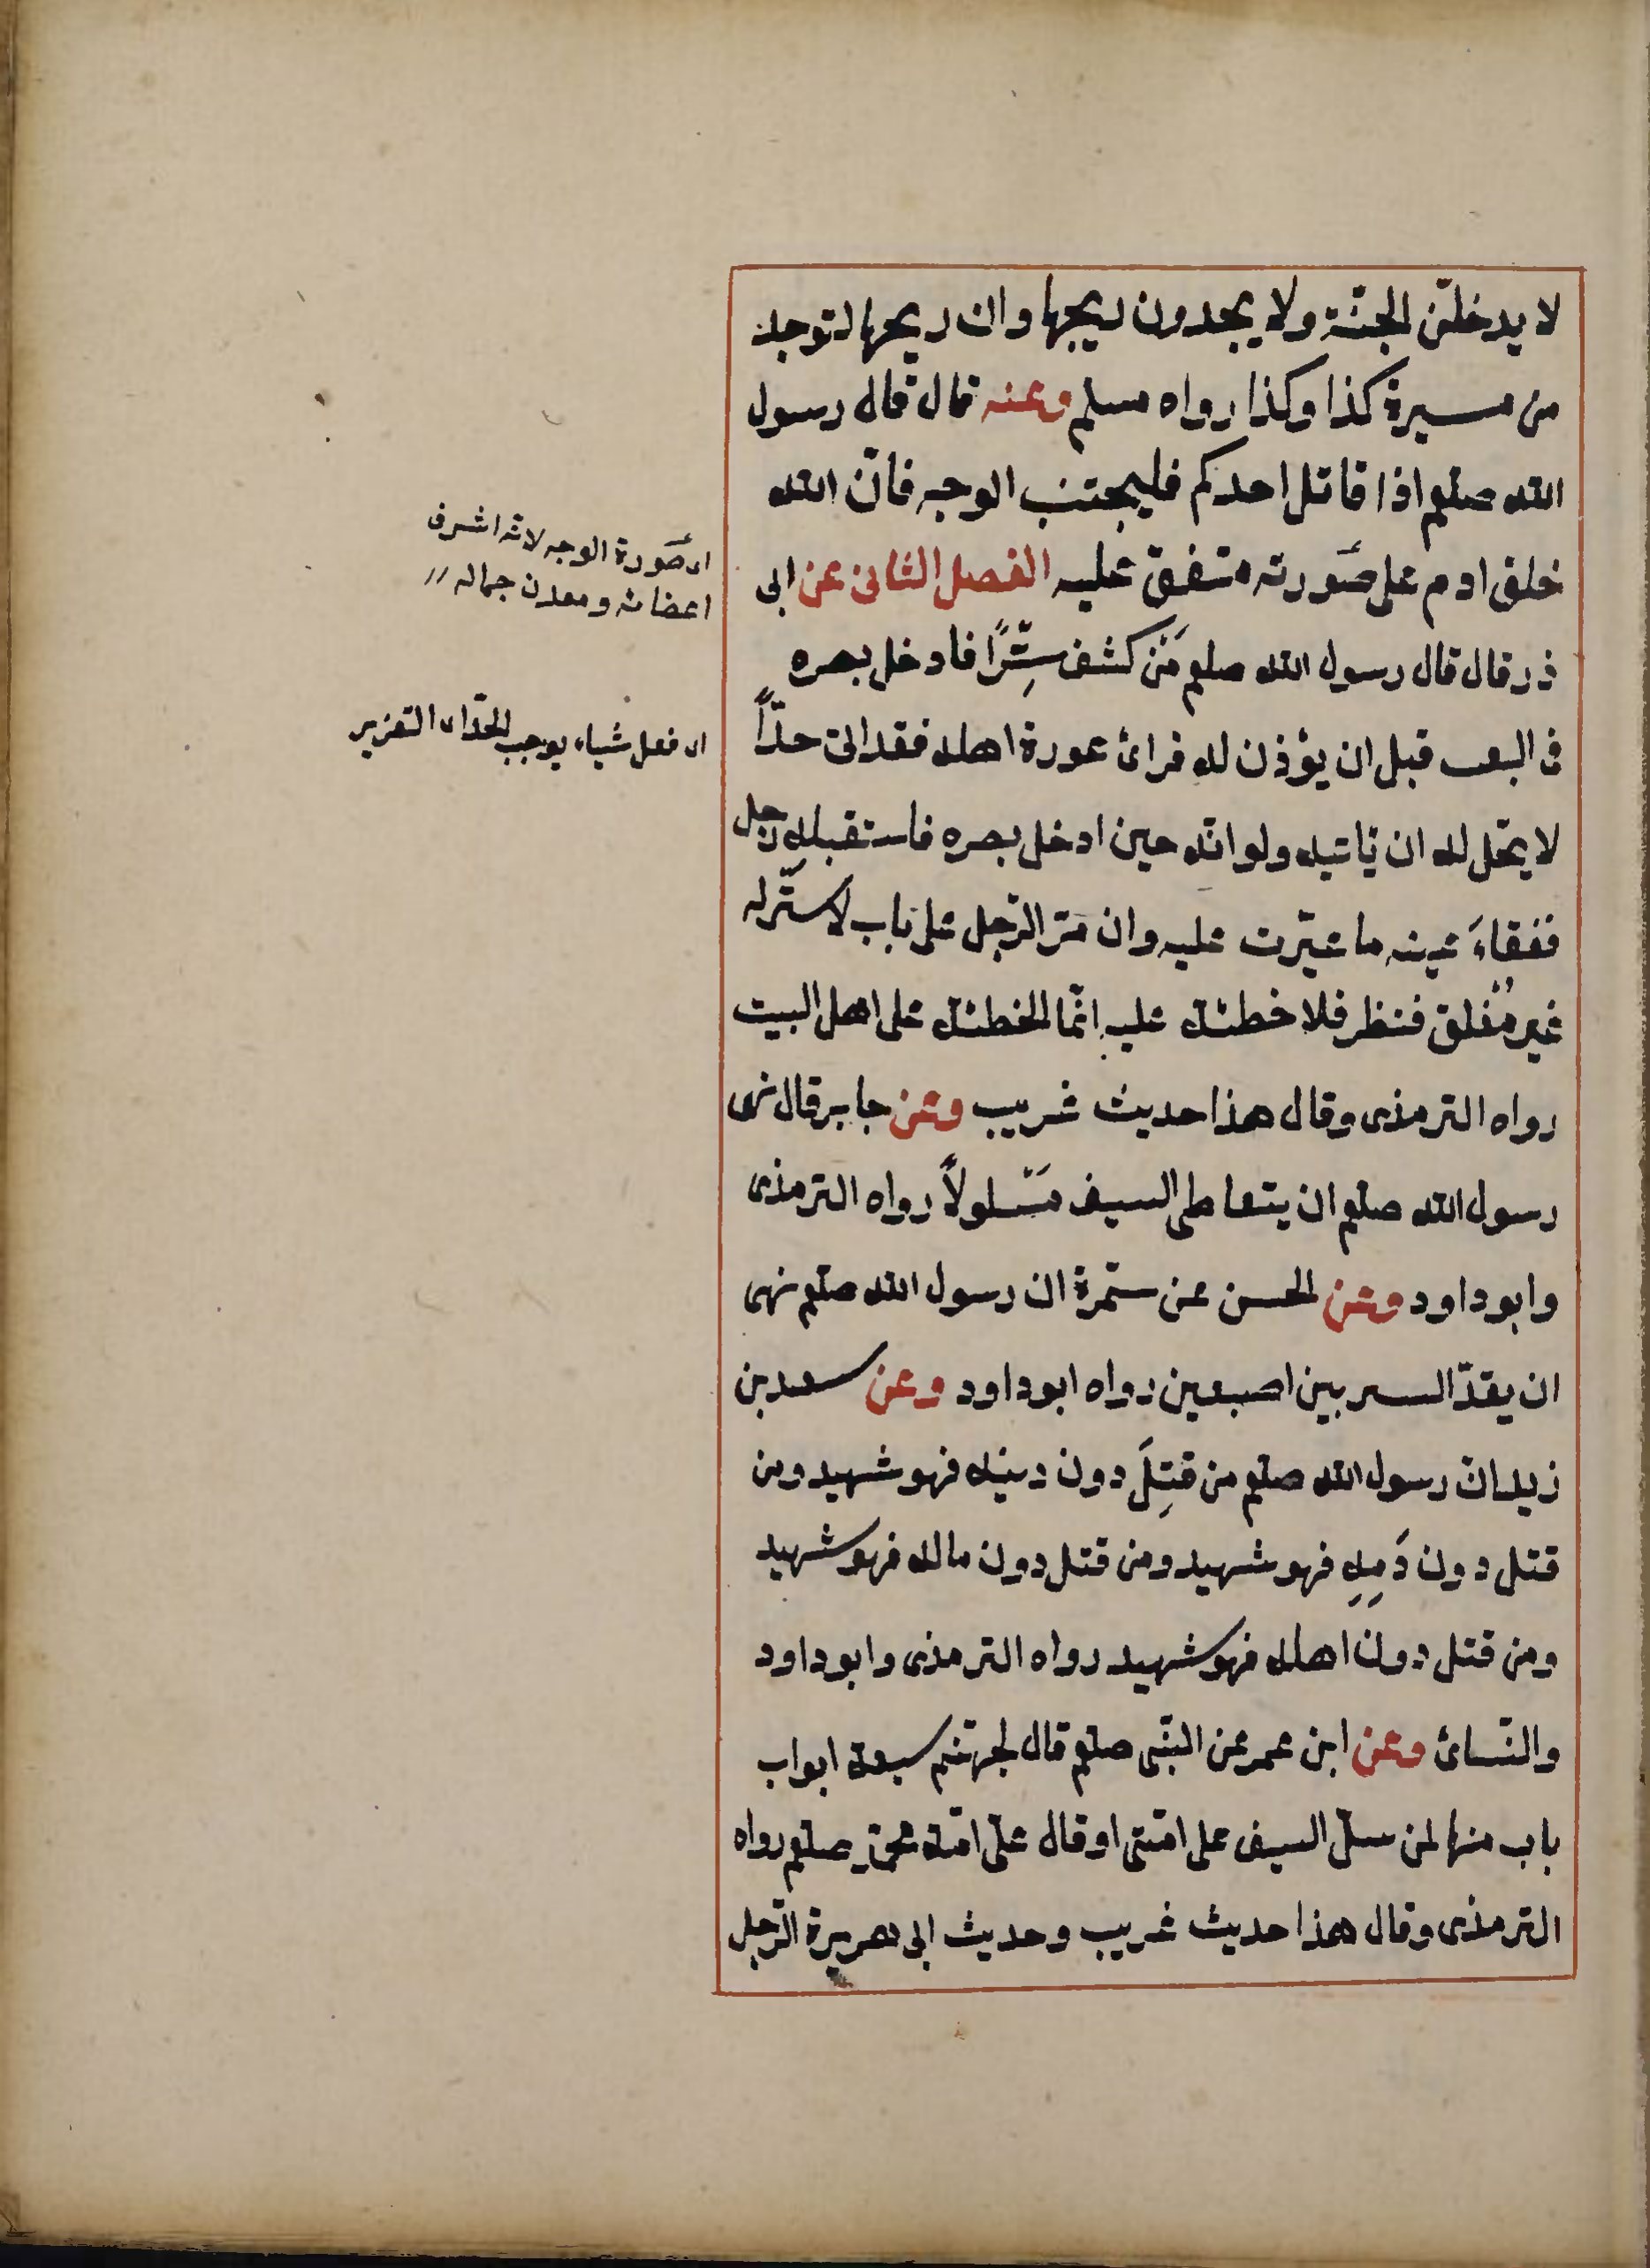 لا يدخلن الجنّة ولا يجدون ريحها وان ريحها لتوجد
من مسيرة كذا وكذا رواه مسلم وعنه قال قال رسول
الله صلعم اذا قاتل احدكم فليجتنب الوجه فانّ الله
خلق ادم على صَورته متفق عليه الفصل الثانى عن ابى
ذر قال قال رسول الله صلعم مَنْ كشف سِتْرًا فادخل بصره
فى البيت قبل ان يؤذن له فرائ عورة اهله فقد اتى حدّاً
لا يحّل له ان يّاتيه ولو انّه حين ادخل بصره فاستقبله رجل
ففقاءَ عينه ما عيّرت عليه وان مّر الرّجل على باب لا سترله
غير مُغْلق فنظر فلا خطئة عليه انّما الخطئة على اهل البيت
رواه الترمذى وقال هذا حديث غريب وعن جابر قال نهى
رسول الله صلعم ان يتعاطى السيف مَسْلولاً رواه الترمذى
وابو داود وعن الحسن عن سمّرة ان رسول الله صلعم نهى
ان يقدّ السير بين اصبعين رواه ابو داود وعن سعد بن
زيد انّ رسول الله صلعم من قتِلَ دون دينه فهو شهيد ومن
قتل دون دَمِهِ فهو شهيد ومن قتل دون ماله فهو شهيد
ومن قتل دون اهله فهو شهيد رواه الترمذى وابو داود
والنّسائ وعن ابن عمر عن النبّى صلعم قال لجهنّم سبعة ابواب
باب منها لمن سلّ السيف على امّتى او قال علّى امّة محمّد صلعم رواه
الترمذى وقال هذا حديث غريب وحديث ابى هريرة الرّجل
اى صَورة الوجه لانّه اشرف
اعضائه ومعدن جماله
اى فعل شياء يوجب الحدّ اى التعزير